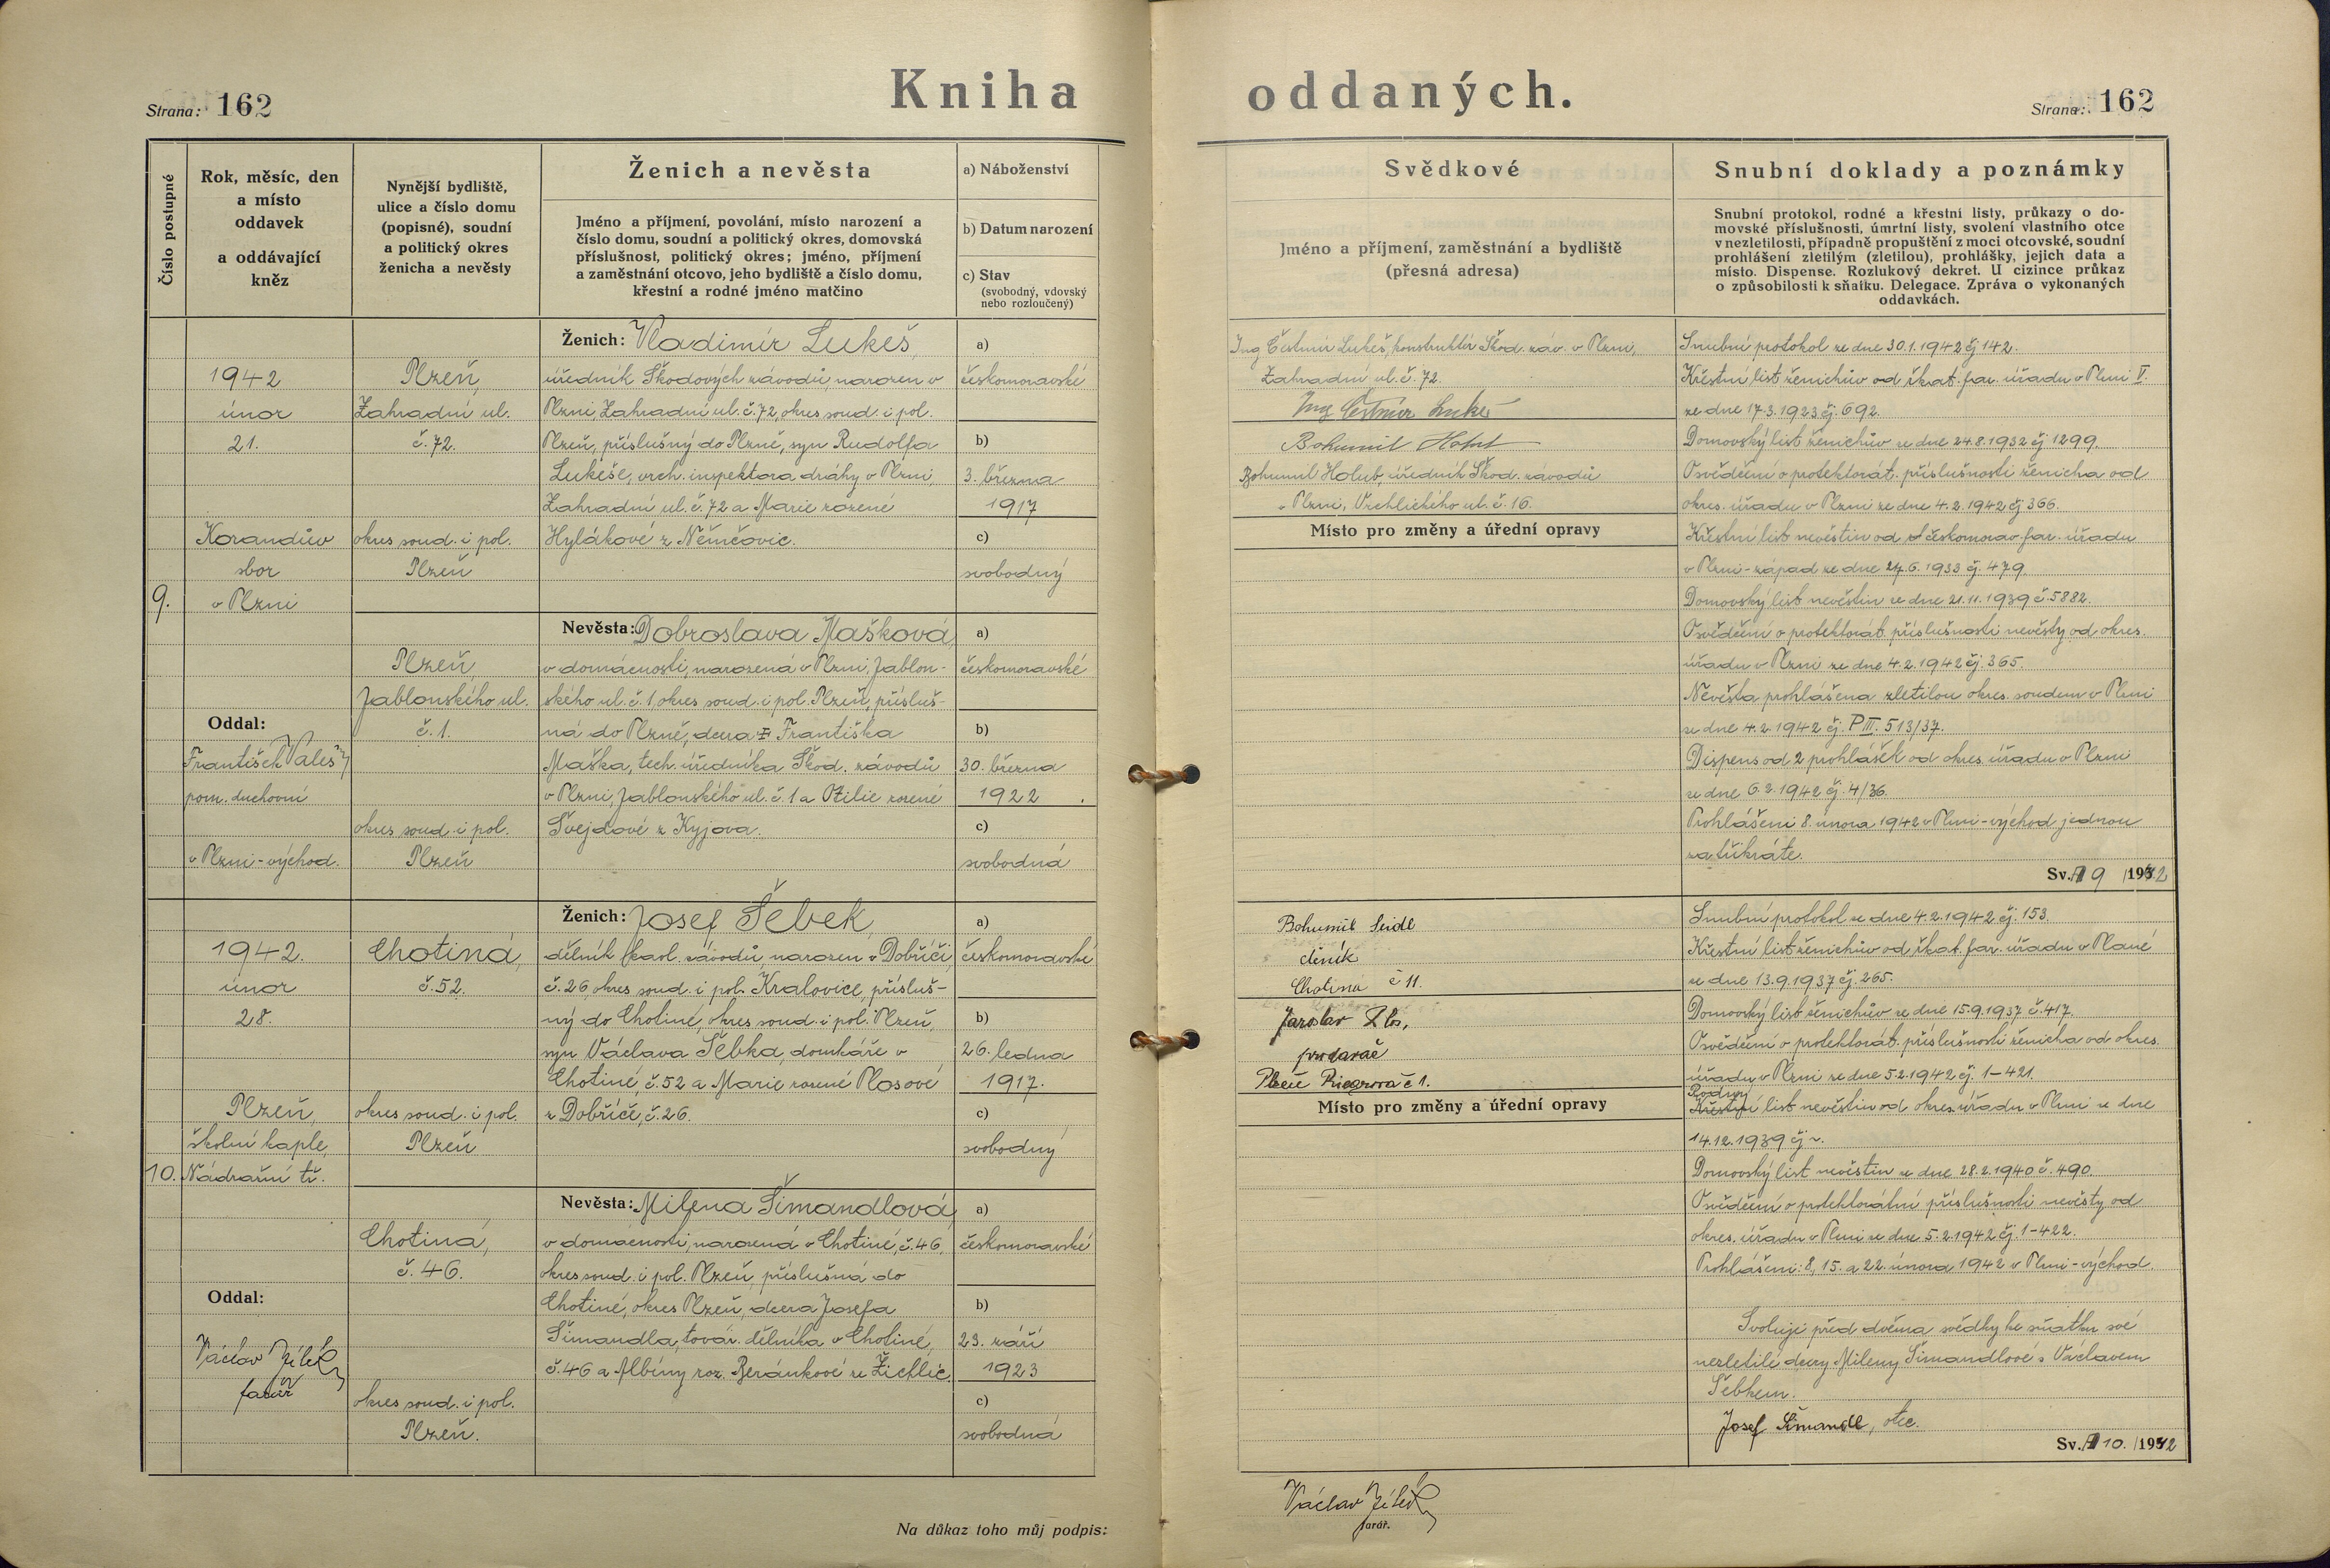 Kniha oddaných.
Strana: 162
Strana: 162
Číslo postupné
Rok, měsíc, den
a místo
oddavek
a oddávající
kněz
Nynější bydliště,
ulice a číslo domu
(popisné), soudní
a politický okres
ženicha a nevěsty
Ženich a nevěsta
Jméno a příjmení, povolání, místo narození a
číslo domu, soudní a politický okres, domovská
příslušnost, politický okres; jméno, příjmení
a zaměstnání otcovo, jeho bydliště a číslo domu,
křestní a rodné jméno matčino
a) Náboženství
b) Datum narození
c) Stav
(svobodný, vdovský
nebo rozloučený)
Svědkové
Jméno a příjmení, zaměstnání a bydliště
(přesná adresa)
Snubní doklady a poznámky
Snubní protokol, rodné a křestní listy, průkazy o do-
movské příslušnosti, úmrtní listy, svolení vlastního otce
v nezletilosti, případně propuštění z moci otcovské, soudní
prohlášení zletilým (zletilou), prohlášky, jejich data a
místo. Dispense. Rozlukový dekret. U cizince průkaz
o způsobilosti k sňatku. Delegace. Zpráva o vykonaných
oddavkách.
9.
1942
únor
21.
Korandův
sbor
v Plzni
Oddal:
František Valeš
pom. duchovní
v Plzni-východ.
Plzeň,
Zahradní ul.
č. 72.
okres soud. i pol.
Plzeň
Ženich: Vladimír Lukeš,
úředník Škodových závodů narozen v
Plzni Zahradní ul. č. 72, okres soud. i pol.
Plzeň, příslušný do Plzně, syn Rudolfa
Lukeše, vrch. inspektora dráhy v Plzni,
Zahradní ul. č. 72 a Marie rozené
Hylákové z Němčovic.
a)
českomoravské
b)
3. března
1917
c)
svobodný
Plzeň,
Jablonského ul.
č. 1.
okres soud. i pol.
Plzeň
Nevěsta: Dobroslava Mašková,
v domácnosti, narozená v Plzni, Jablon-
ského ul. č. 1, okres soud. i pol. Plzeň, přísluš-
ná do Plzně, dcera Františka
Maška, tech. úředníka Škod. závodů
v Plzni, Jablonského ul. č. 1 a Otilie rozené
Švejdové z Kyjova.
a)
českomoravské
b)
30. března
1922.
c)
svobodná
Ing Čestmír Lukeš, konstruktér Škod. záv. v Plzni,
Zahradní ul. č. 72.
Ing Čestmír Lukeš
Bohumil Holub
Bohumil Holub, úředník Škod. závodů
v Plzni, Vrchlického ul. č. 16.
Místo pro změny a úřední opravy
Snubní protokol ze dne 30.1.1942 čj 142.
Křestní list ženichův od řkat. far. úřadu v Plzni V.
ze dne 17.3.1923 čj. 692.
Domovský list ženichův ze dne 24.8.1932 čj 1299.
Osvědčení o protektorát. příslušnosti ženicha od
okres. úřadu v Plzni ze dne 4.2.1942 čj 366.
Křestní list nevěstin od českomorav. far. úřadu
v Plzni-západ ze dne 27.6.1933 čj. 479.
Domovský list nevěstin ze dne 21.11.1939 č. 5882.
Osvědčení o protektorát. příslušnosti nevěsty od okres.
úřadu v Plzni ze dne 4.2.1942 čj. 365.
Nevěsta prohlášena zletilou okres. soudem v Plzni
ze dne 4.2.1942 čj. P III. 513/37.
Dispens od 2 prohlášek od okres. úřadu v Plzni
ze dne 6.2.1942 čj. 4/36.
Prohlášeni 8. února 1942 v Plzni-východ jednou
za třikráte.
Sv. 9 /1942
10.
1942.
únor
28.
Plzeň,
školní kaple,
Nádražní tř.
Oddal:
Václav Jílek
farář
Chotiná,
č. 52.
okres soud. i pol.
Plzeň
Ženich: Josef Šebek,
dělník kaol. závodů, narozen v Dobříči,
č. 26, okres soud. i pol. Kralovice, přísluš-
ný do Chotiné, okres soud. i pol. Plzeň,
syn Václava Šebka, domkáře v
Chotiné, č. 52 a Marie rozené Plosové
z Dobříče, č. 26.
a)
českomoravské
b)
26. ledna
1917.
c)
svobodný
Chotiná,
č. 46.
okres soud. i pol.
Plzeň.
Nevěsta: Milena Šimandlová,
v domácnosti, narozená v Chotiné, č. 46,
okres soud. i pol. Plzeň, příslušná do
Chotiné, okres Plzeň, dcera Josefa
Šimandla, továr. dělníka v Chotiné,
č. 46 a Albíny roz. Beránkové ze Žichlic.
a)
českomoravské
b)
23. září
1923
c)
svobodná
Bohumil Seidl
dělník
Chotiná č 11.
Jaroslav
prodavač
Plzeň Riegrova č 1.
Místo pro změny a úřední opravy
Snubní protokol ze dne 4.2.1942 čj. 153.
Křestní list ženichův od řkat. far. úřadu v Plané
ze dne 13.9.1937 čj. 265.
Domovský list ženichův ze dne 15.9.1937 č. 417.
Osvědčení o protektorát. příslušnosti ženicha od okres.
úřadu v Plzni ze dne 5.2.1942 čj. 1-421.
Rodný
Křestní list nevěstin od okres. úřadu v Plzni ze dne
14.12.1939 čj
Domovský list nevěstin ze dne 28.2.1940 č. 490.
Osvědčení o protektorátní příslušnosti nevěsty od
okres. úřadu v Plzni ze dne 5.2.1942 čj. 1-422.
Prohlášeni: 8., 15. a 22. února 1942 v Plzni-východ.
Svoluji před dvěma svědky ke sňatku své
nezletilé dcery Mileny Šimandlové s Václavem
Šebkem.
Josef Šimandl, otec.
Sv. 10. /1942
Na důkaz toho můj podpis:
Václav Jílek
farář.